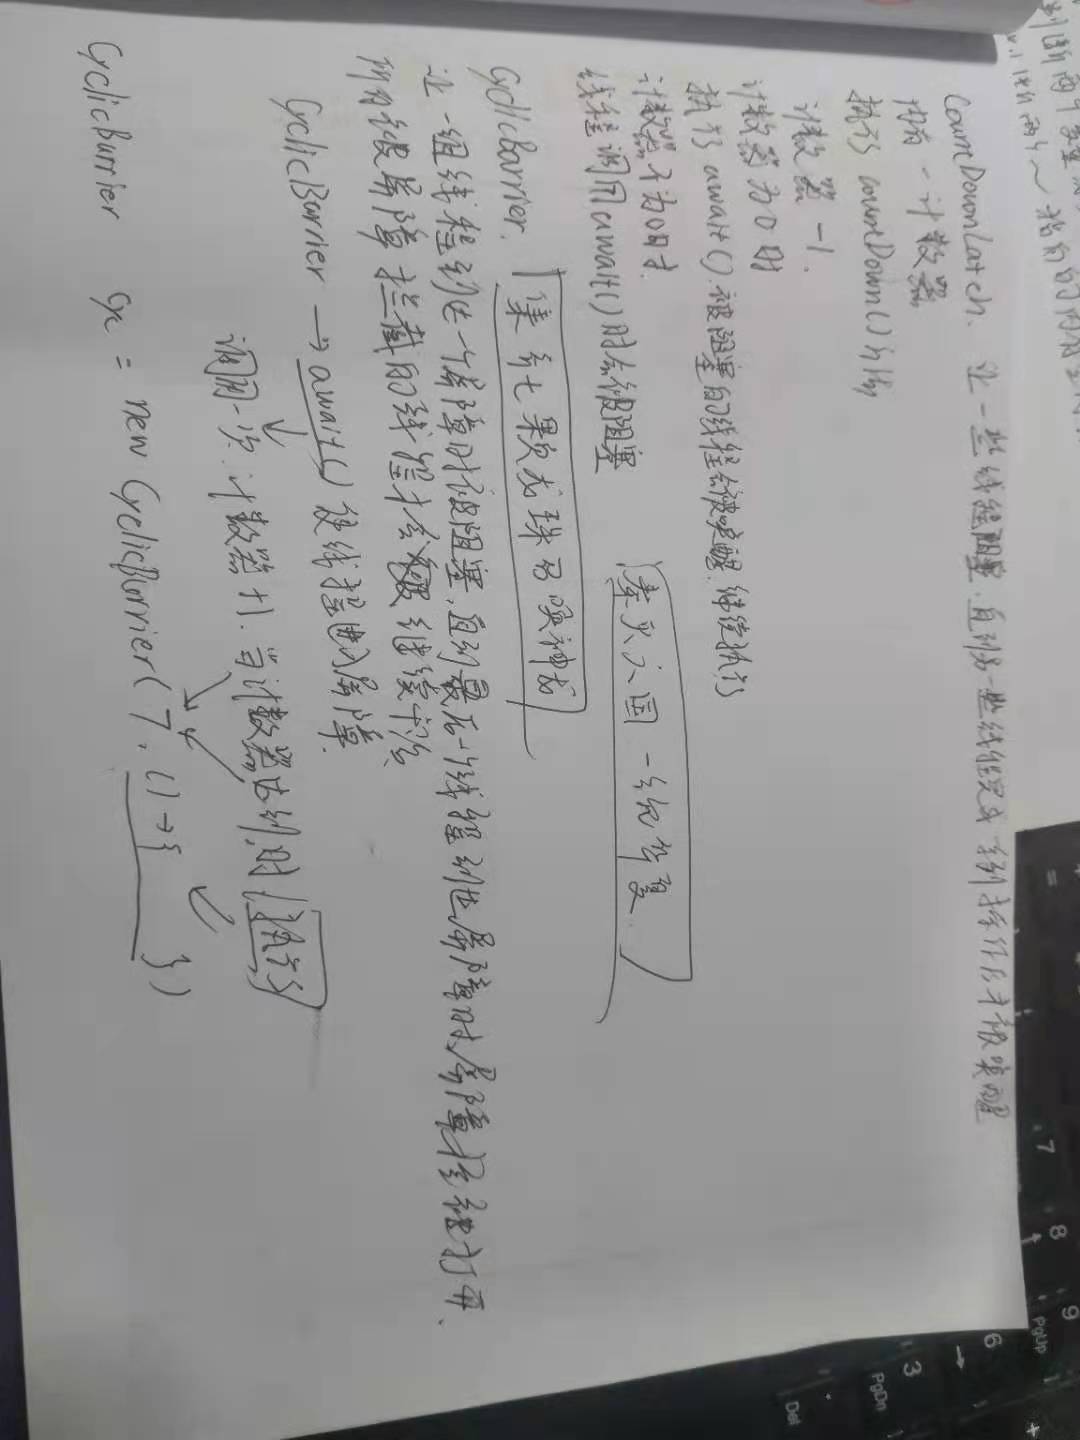 CountDownLatch. 让一些线程阻塞.直到另一些线程完成一系列操作后才被唤醒
内有一计数器
执行 countDown()方法
计数器 -1.
计数器为0时
执行 await() 被阻塞的线程会被唤醒.继续执行
计数器不为0时.
线程调用await()时会被阻塞
秦灭六国 一统华夏
CyclicBarrier.
集齐七颗龙珠召唤神龙
让一组线程到达一个屏障时被阻塞,直到最后一个线程到达屏障时.屏障才会被打开.
所有被屏障拦截的线程才会继续干活.
CyclicBarrier → await() 使线程进入屏障.
调用一次.计数器+1.当计数器达到7时 执行
CyclicBarrier cyc = new CyclicBarrier(7, () → { })
7
8
9
PgUp
6
→
3
PgDn
Del
+
=